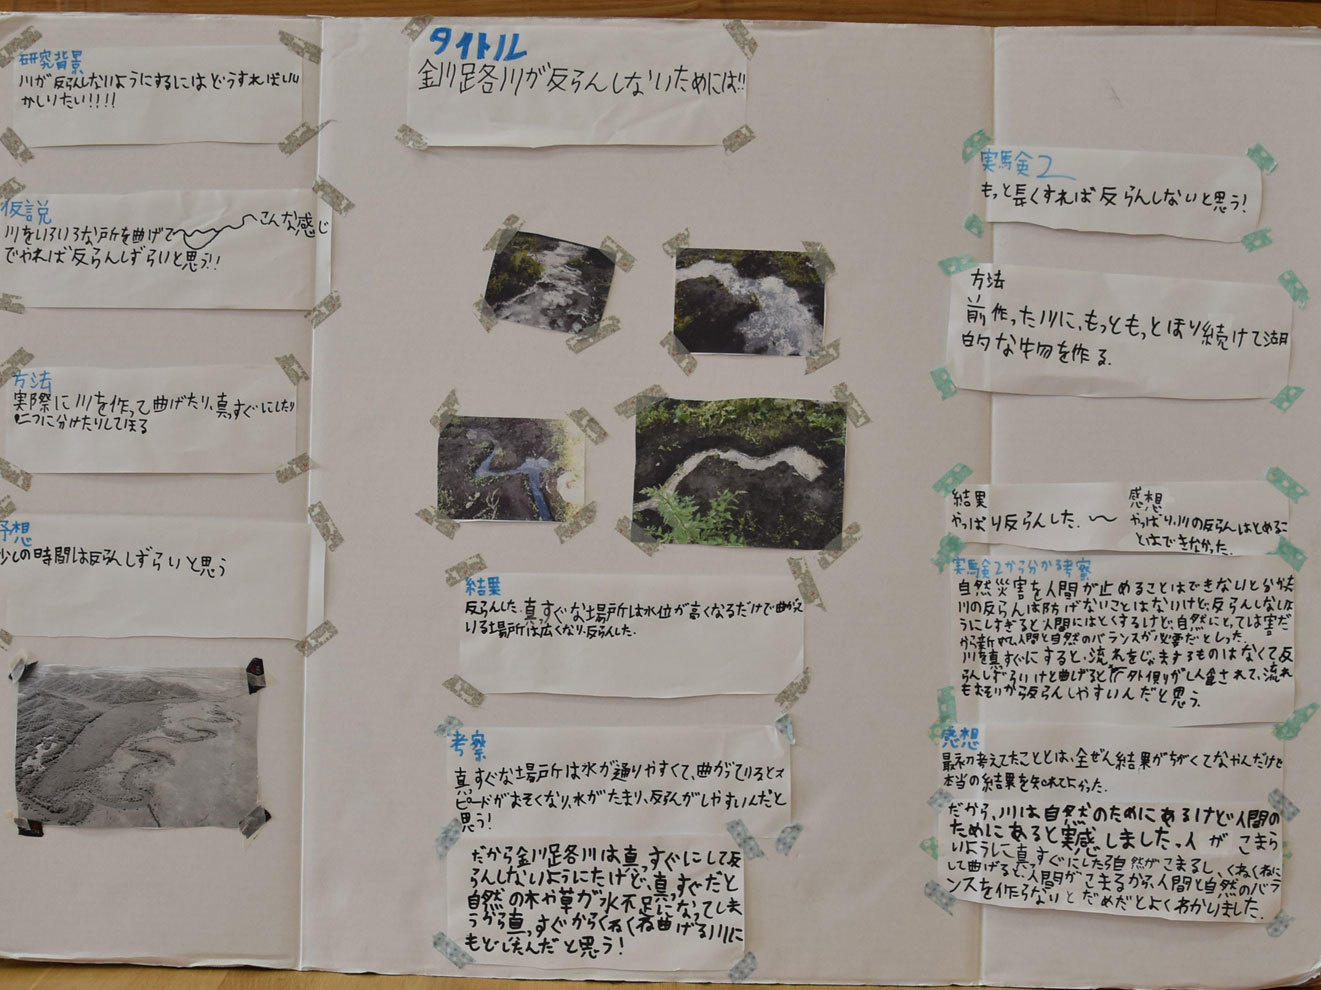 研究背景
川が反らんしないようにするにはどうすればいい
かしりたい!!!!
仮説
川をいろいろな戸所を曲げて〜こんな感じ
でやれば反らんしずらいと思う!!
方法
実際に川を作って曲げたり、真っすぐにしたり
二つに分けたりしてほる
予想
少しの時間は反らんしずらいと思う
タイトル
釧路川が反らんしないためには!!
結果
反らんした。真っすぐな場所は水位が高くなるだけで曲がって
いる場所は広くなり、反らんした。
考察
真っすぐな場所は水が通りやすくて、曲がっているとス
ピードがおそくなり、水がたまり、反らんがしやすいんだと
思う!
だから釧路川は真っすぐにして反
らんしないようにしたけど、真っすぐだと
自然の木や草が水不足になってしま
うから真っすぐからくねくね曲げる川に
もどしたんだと思う!
実験2
もっと長くすれば反らんしないと思う!
方法
前作った川に、もっともっとほり続けて湖
的な物を作る。
結果
やっぱり反らんした。〜
感想
やっぱり、川の反らんはとめるこ
とはできなかった。
実験2から分かる考察
自然災害を人間が止めることはできないと分かった
川の反らんは防げないことはないけど、反らんしないよ
うにしすぎると人間にはとくするけど、自然にとっては害だ
から新ためて人間と自然のバランスが必要だとしった。
川を真っすぐにすると、流れをじゃまするものはなくて反
らんしずらいけど曲げると外側が侵食されて、流れ
もおそいから反らんしやすいんだと思う。
感想
最初考えてたこととは、全ぜん結果がちがくてなやんだけど
本当の結果を知れてよかった。
だから、川は自然のためにあるけど人間の
ためにあると実感しました。人がこまら
いように真っすぐにしたら自然がこまるし、くねくねに
して曲げると、人間がこまるから、人間と自然のバラ
ンスを作らないとだめだとよくわかりました。